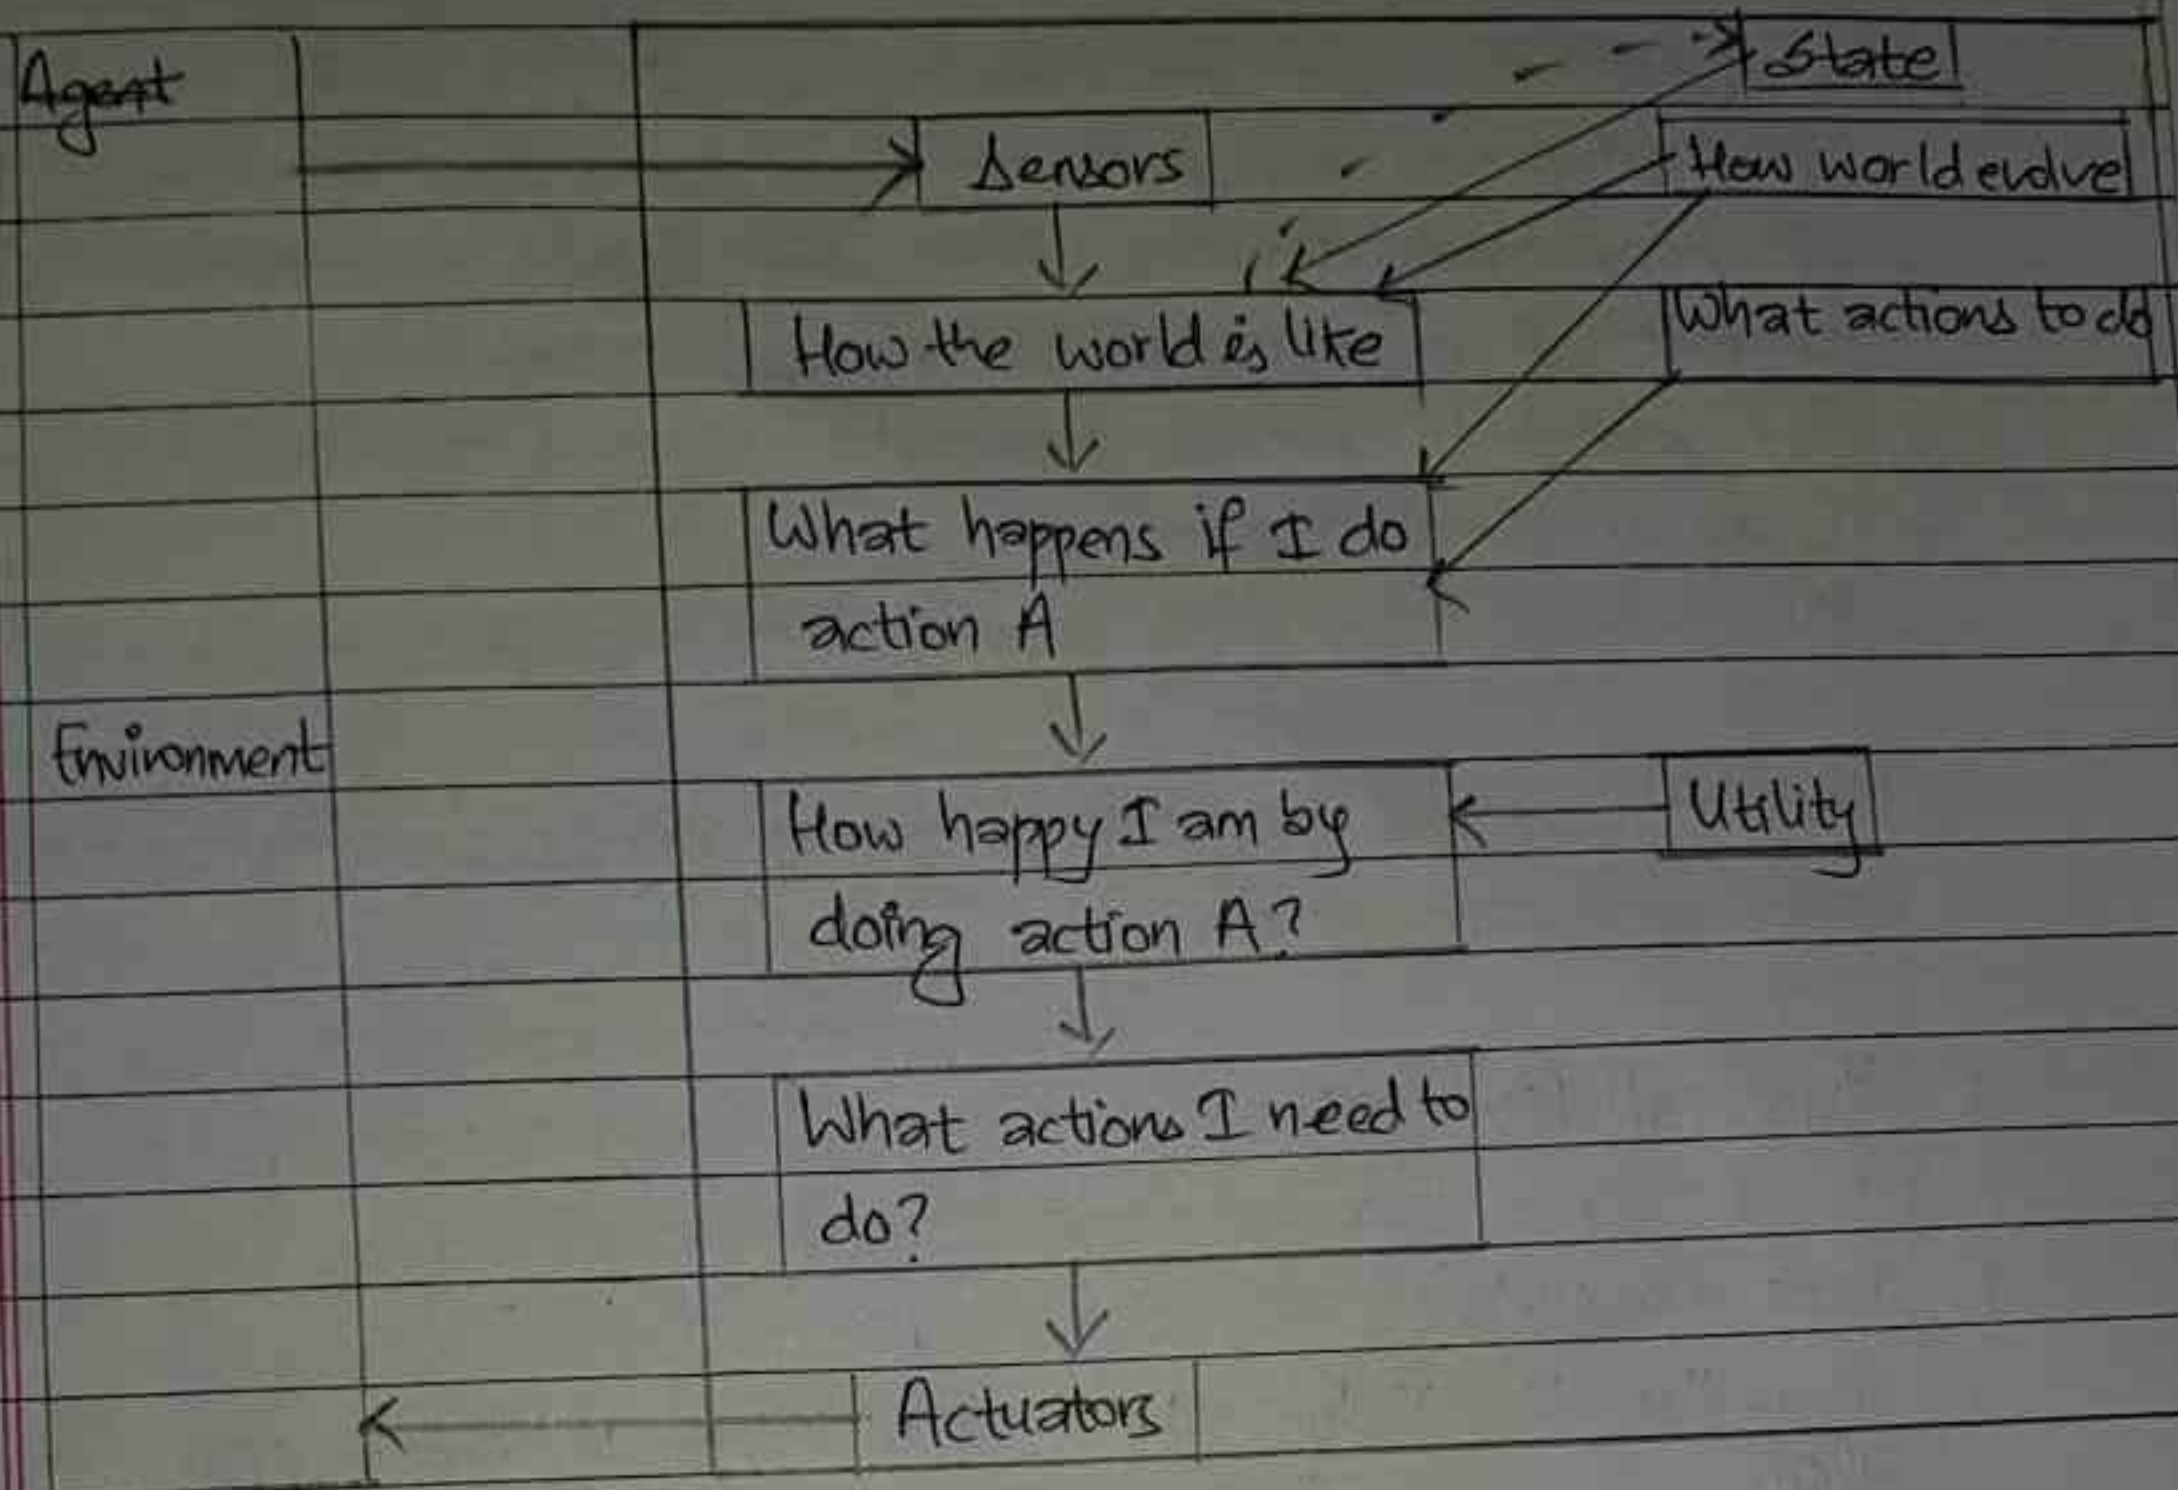 Agent
State
Sensors
How world evolve
How the world is like
What actions to do
What happens if I do
action A
Environment
How happy I am by
doing action A?
Utility
What actions I need to
do?
Actuators